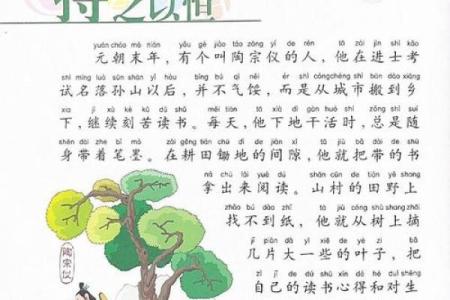 持之以恒
yuán cháo mò nián yǒu gè jiào táo zōng yí de rén tā zài jìn shì kǎo
元朝末年，有个叫陶宗仪的人，他在进士考
shì míng luò sūn shān yǐ hòu bìng bú qì něi ér shì cóng chéng shì bān dào xiāng
试名落孙山以后，并不气馁，而是从城市搬到乡
xia jì xù kè kǔ dú shū měi tiān tā xià dì gàn huó shí zǒng shì suí
下，继续刻苦读书。每天，他下地干活时，总是随
shēn dài zhe bǐ mò zài gēng tián chú dì de jiàn xì tā jiù bǎ dài de shū
身带着笔墨。在耕田锄地的间隙，他就把带的书
ná chū lái yuè dú shān cūn de tián yě shang
拿出来阅读。山村的田野上
zhǎo bú dào zhǐ tā jiù cóng shù shang zhāi
找不到纸，他就从树上摘
jǐ piàn dà yì xiē de yè zi bǎ
几片大一些的叶子，把
zì jǐ de dú shū xīn dé hé duì shēng
自己的读书心得和对生
陶宗仪